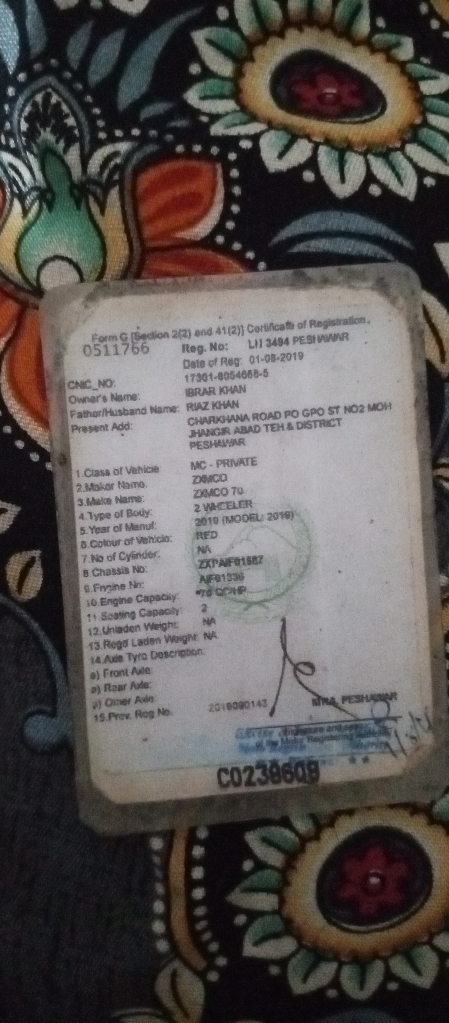 Form G [Section 2(2) and 41(2)] Certificate of Registration.
0511766 Reg. No: LII 3494 PESHAWAR
Date of Reg: 01-08-2019
CNIC_NO: 17301-8054668-5
Owner's Name: IBRAR KHAN
Father/Husband Name: RIAZ KHAN
Present Add: CHARKHANA ROAD PO GPO ST NO2 MOH
JHANGIR ABAD TEH & DISTRICT
PESHAWAR
1.Class of Vehicle: MC - PRIVATE
2.Maker Name. ZXMCO
3.Make Name: ZXMCO 70
4.Type of Body: 2 WHEELER
5.Year of Manuf: 2019 (MODEL: 2019)
6.Colour of Vehicle: RED
7.No of Cylinder: NA
8 Chassis No: ZXPAIF01587
9.Engine No: AIF01336
10.Engine Capacity: *70 CC/HP
11.Seating Capacity: 2
12.Unladen Weight: NA
13.Regd Laden Weight: NA
14.Axle Tyre Description:
a) Front Axle:
a) Rear Axle:
a) Other Axle:
15.Prov. Reg No. 2019090143
MRA, PESHAWAR
C0238609